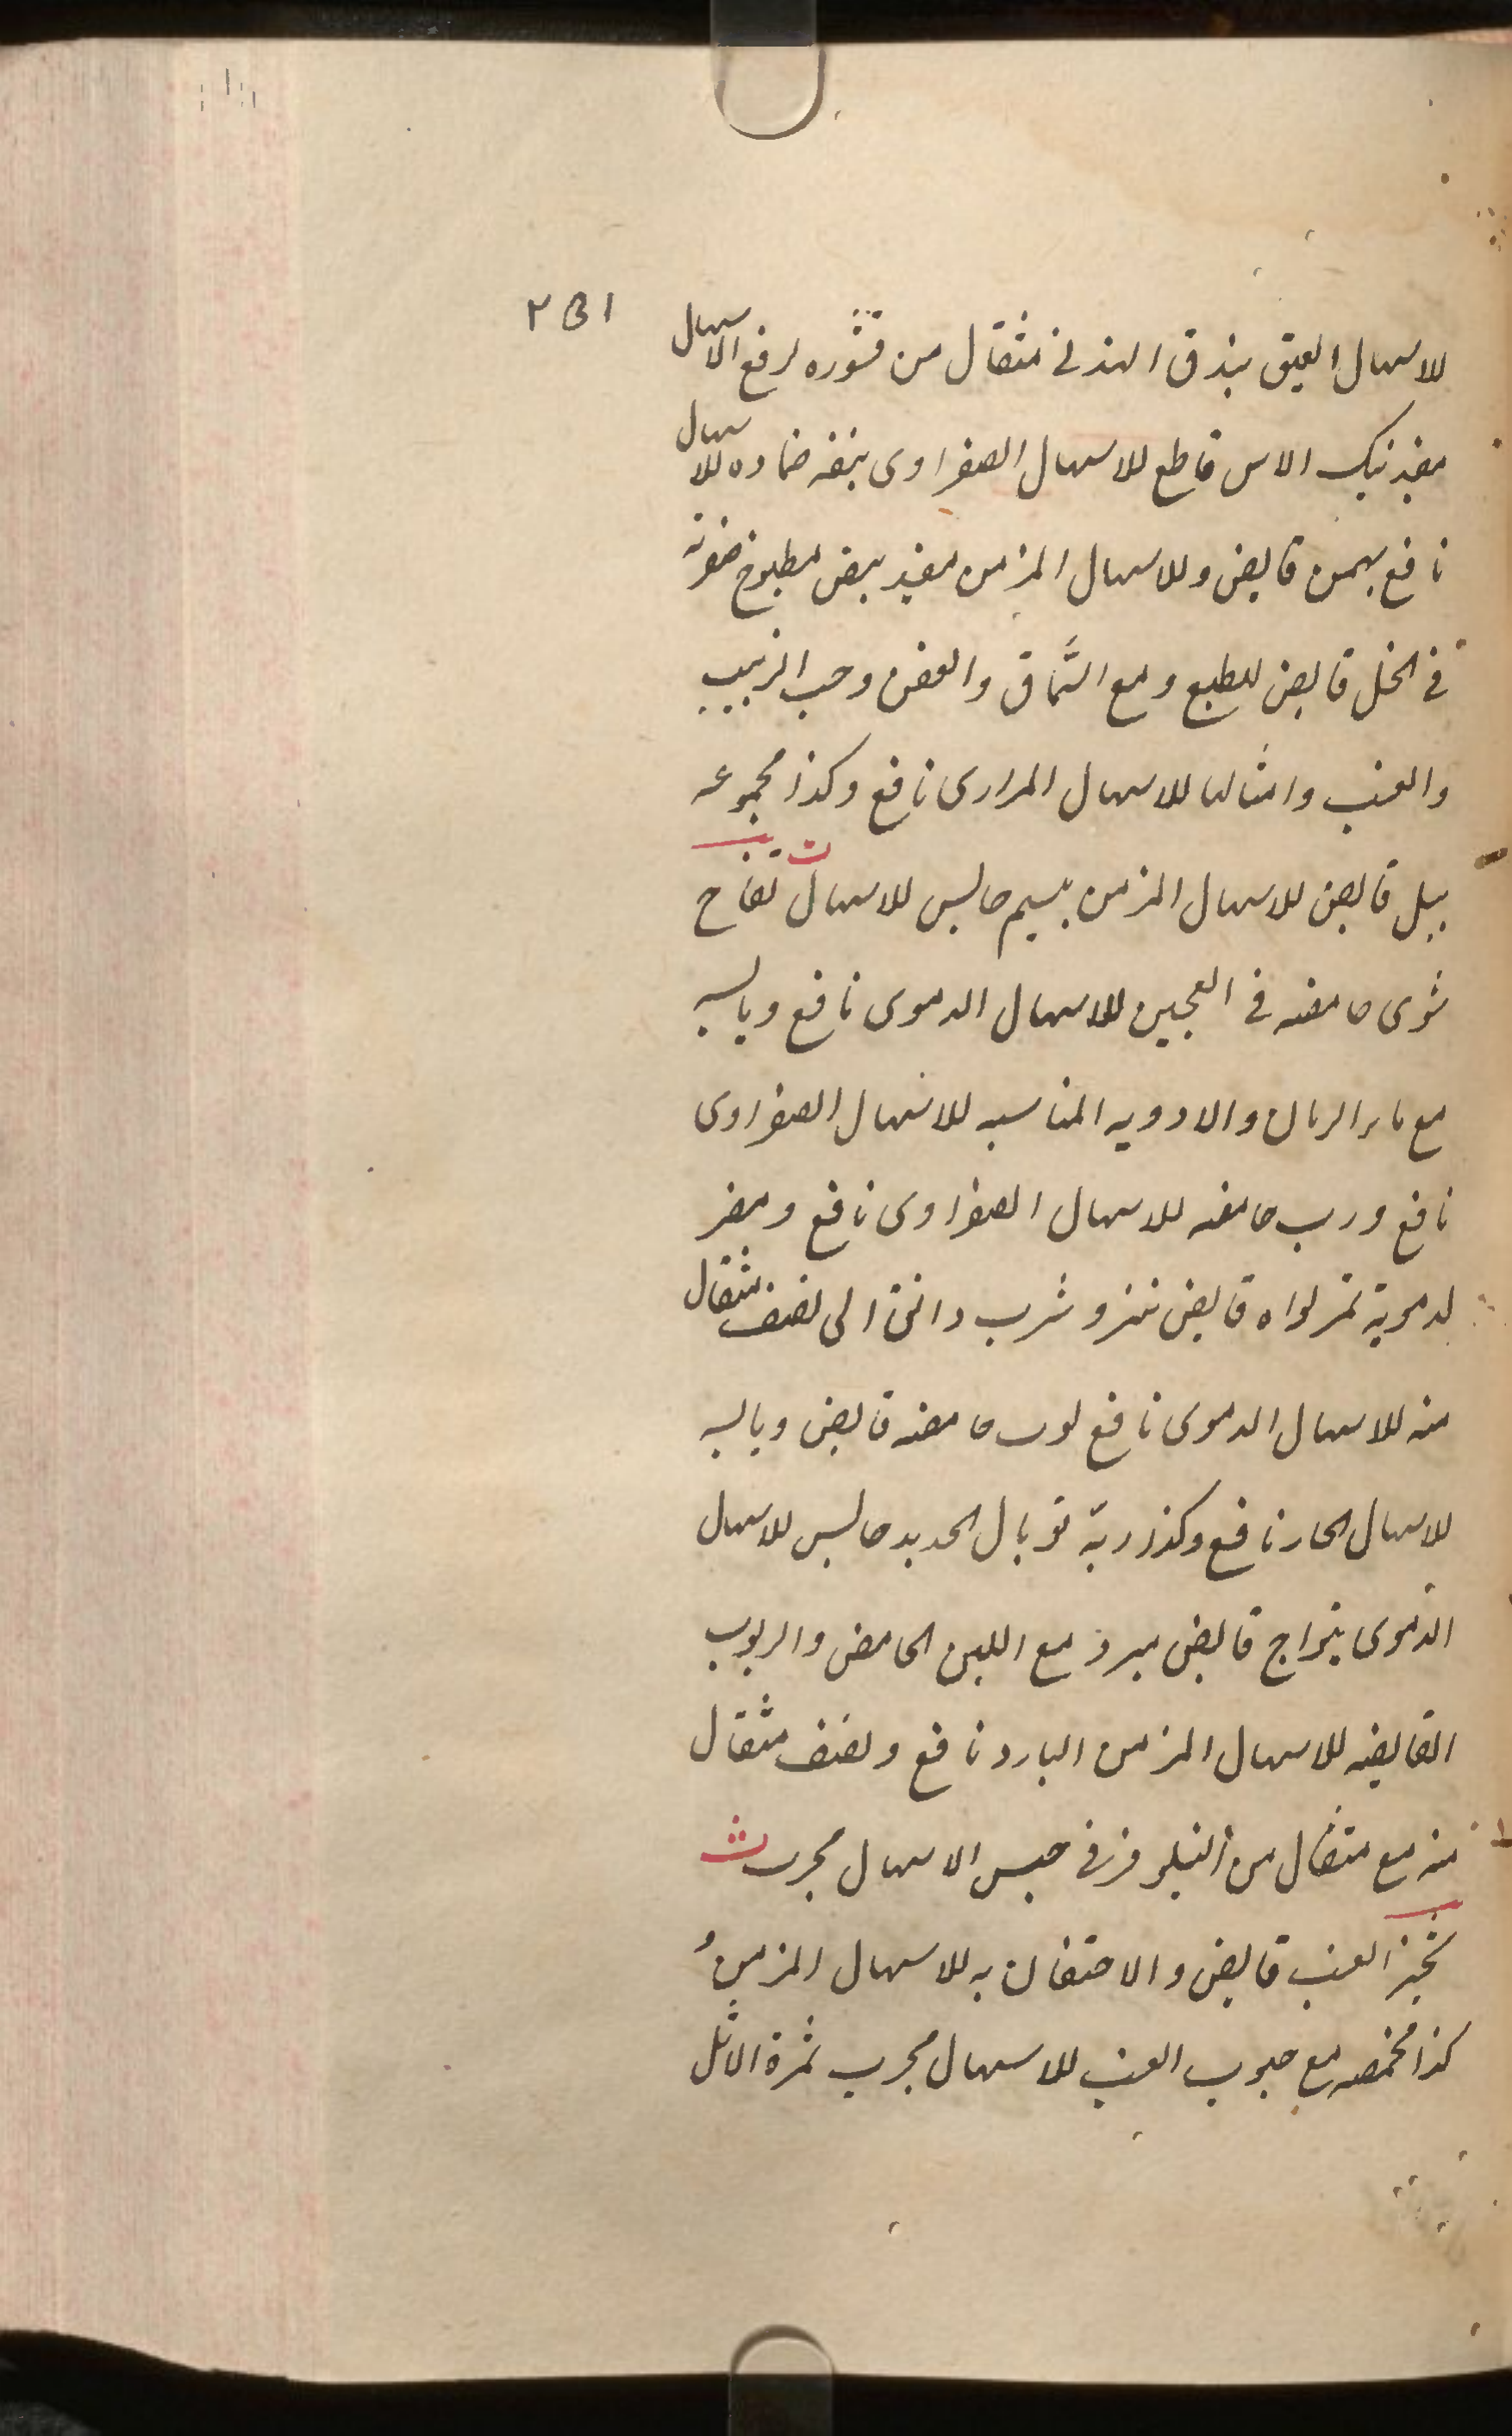 ٢٥١
للاسهال العتيق بندق الهندي مثقال من قشوره لرفع الاسهال
مفيد بنك الاس قاطع للاسهال الصفراوى بنفه ضماده للاسهال
نافع بهمن قابض وللاسهال المزمن مفيد بيض مطبوخ صفرته
في الخل قابض للطبع ومع السّماق والعفص وحب الزبيب
والعنب وامثالها للاسهال المرارى نافع وكذا مجموعه
بيل قابض للاسهال المزمن بيسم حابس للاسهال ت تفاح
شوى حامضه في العجين للاسهال الدموى نافع ويابسه
مع ماء الرمان والادويه المناسبه للاسهال الصفراوى
نافع ورب حامضه للاسهال الصفراوى نافع ومضر
لدموية تمر نواه قابض تنزو شرب دانق الى نصف مثقال
منه للاسهال الدموى نافع توت حامضه قابض ويابسه
للاسهال الحار نافع وكذا ربه توبال الحديد حابس للاسهال
الدموى قابض مبرد مع اللبن الحامض والربوب
القابضه للاسهال المزمن البارد نافع ونصف مثقال
منه مع مثقال من النيلوفر في حبس الاسهال مجرب ث
ثجير العنب قابض والاحتقان به للاسهال المزمن و
كذا محمصه مع حبوب العنب للاسهال مجرب ثمرة الاثل